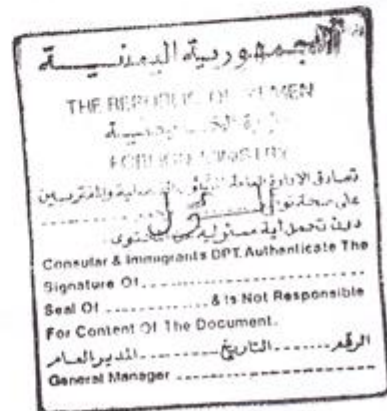 الجمهورية اليمنية
THE REPUBLIC OF YEMEN
وزارة الخارجية
FOREIGN MINISTRY
تصادق الادارة العامة للشؤون القنصلية والمغتربين
على صحة
دون تحمل أية مسئولية المحتوى
Consular & Immigrants DPT. Authenticate The
Signature Of
Seal Of & Is Not Responsible
For Content Of The Document.
الرقم التاريخ المدير العام
General Manager